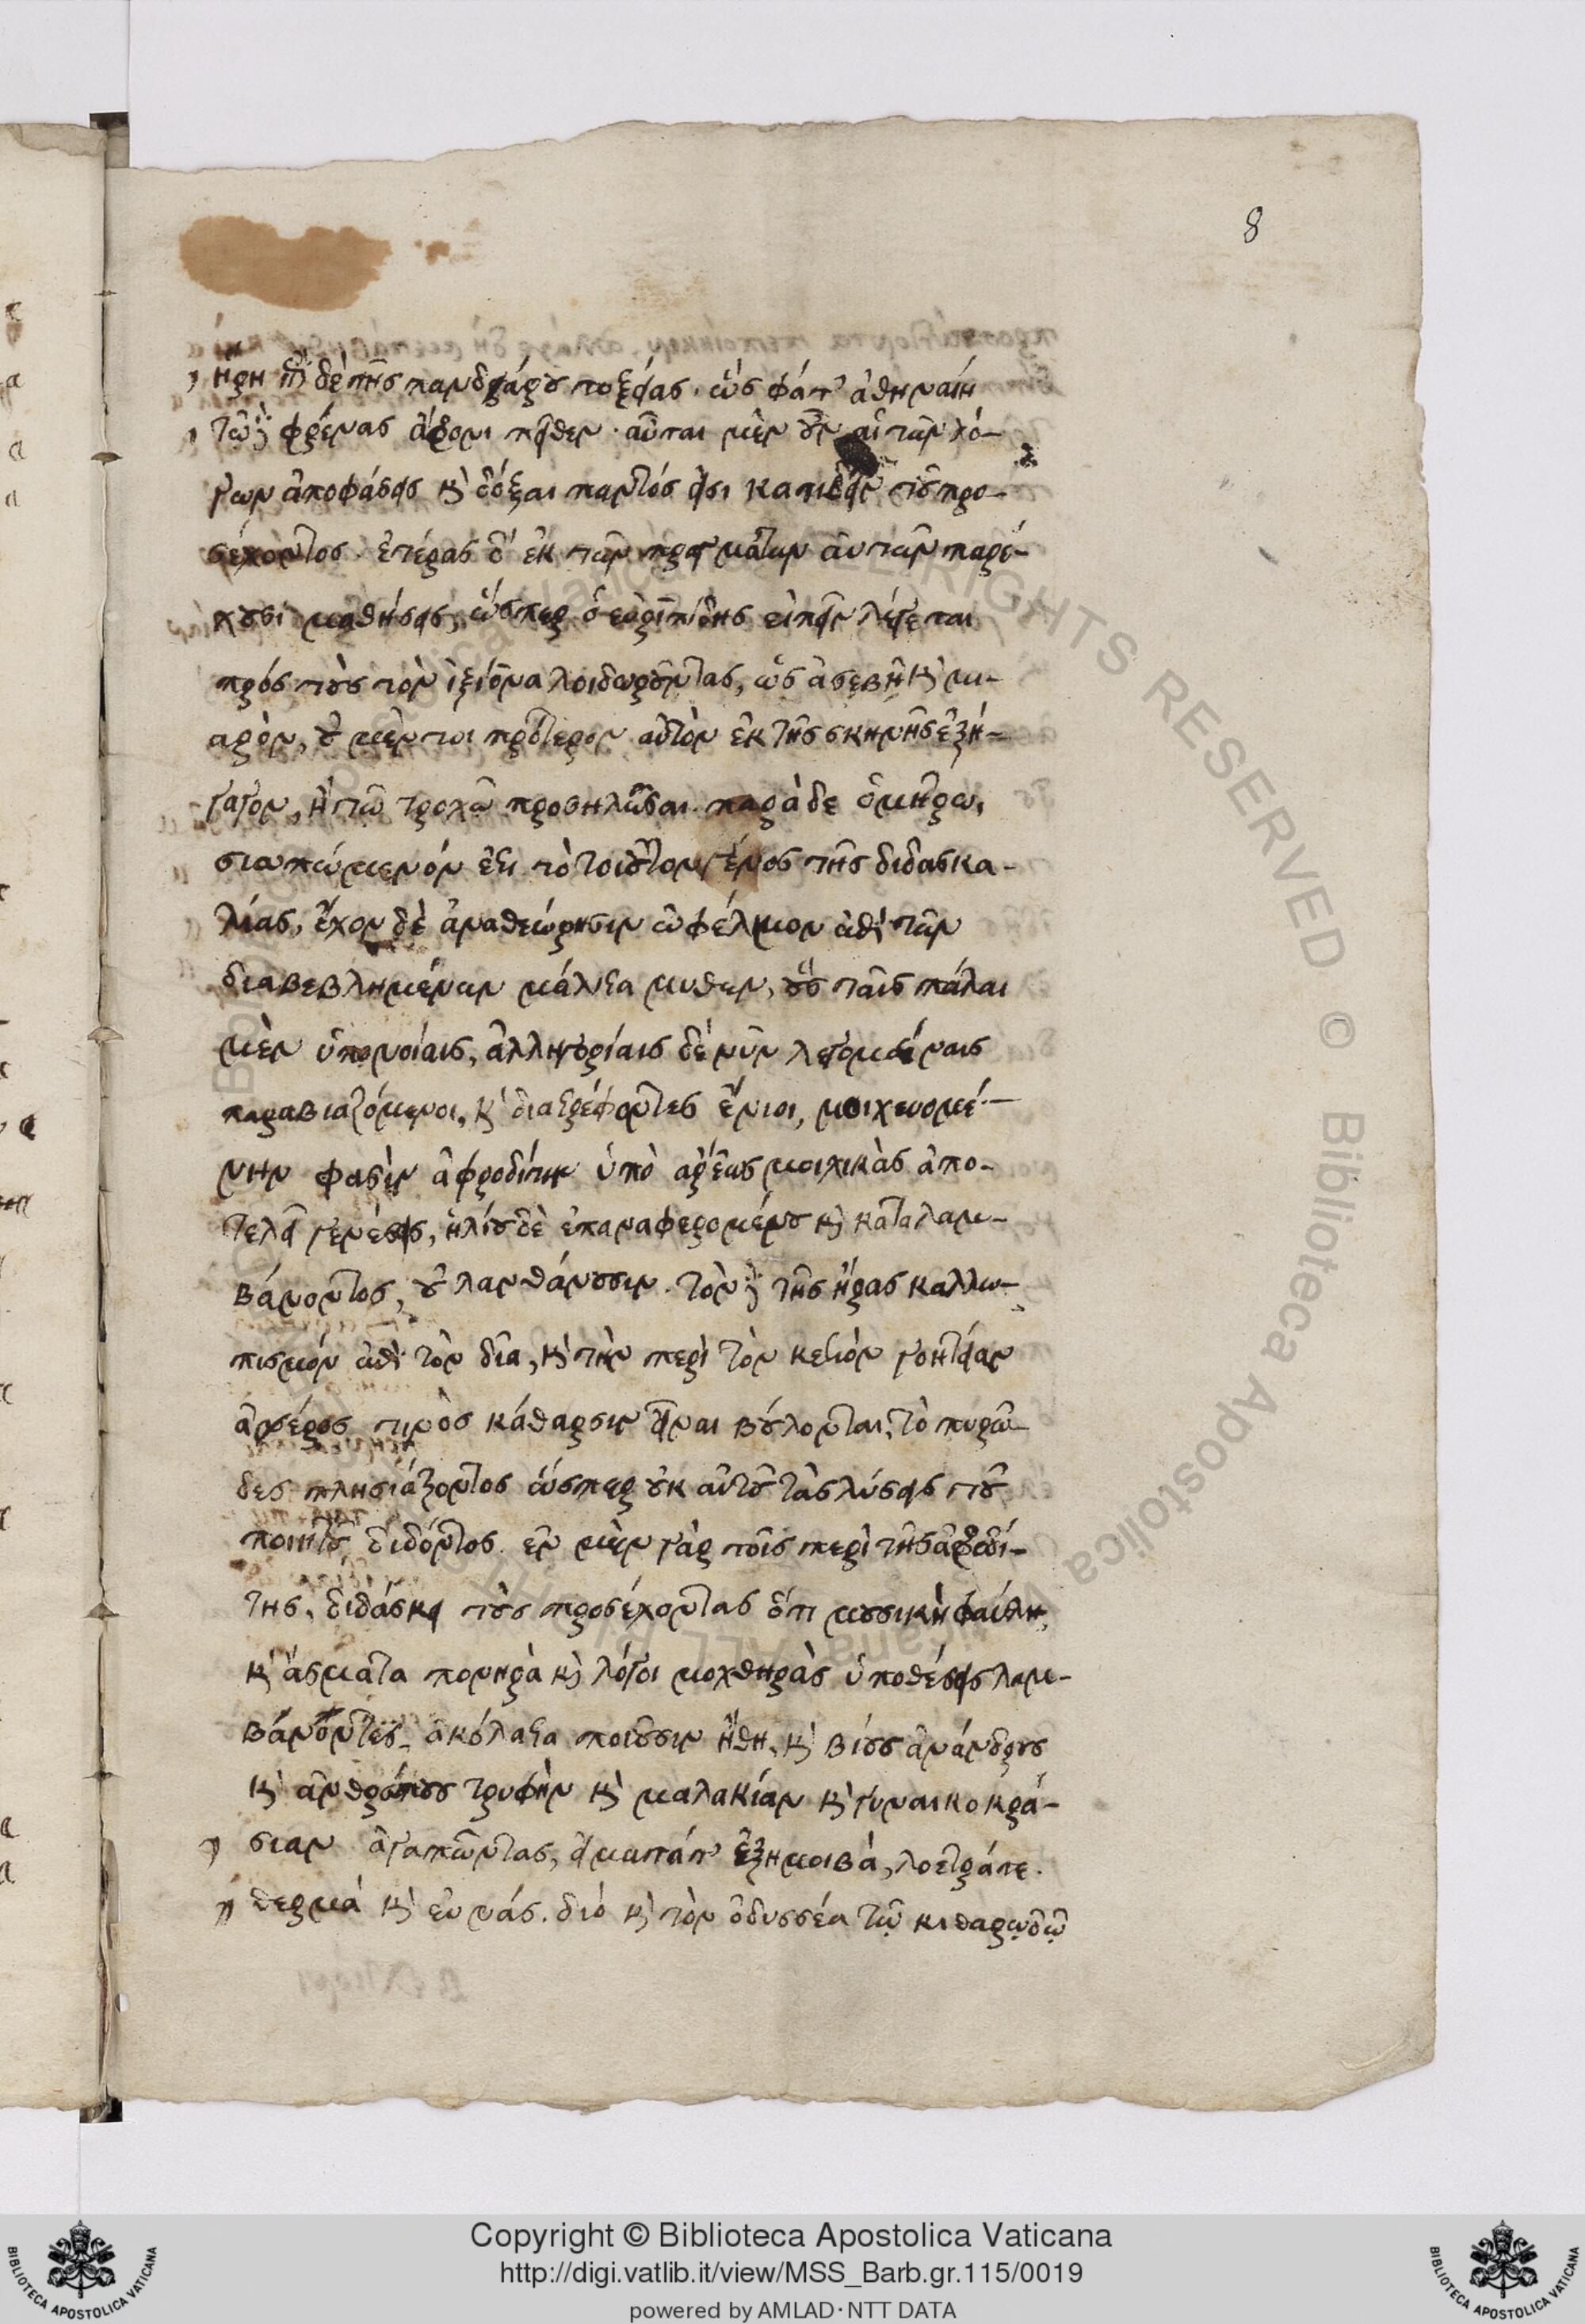 8
ἤρη ἐπὶ δὲ τῆς πανδάρου τοξείας. ὣς φάτ' ἀθηναίη
τῷ δὲ φρένας ἄφρονι πεῖθεν. αὗται μὲν οὖν αἱ τῶν λό-
γων ἀποφάσεις καὶ δόξαι παντός εἰσι κατιδεῖν τοῦ προ-
σέχοντος. ἑτέρας δ' ἐκ τῶν πραγμάτων αὐτῶν παρέ-
χουσι μαθήσεις, ὥσπερ ὁ εὐριπίδης εἰπεῖν λέγεται
πρός τοὺς τὸν ἰξίονα λοιδωροῦντας, ὡς ἀσεβῆ καὶ μι-
αρὸν, οὐ μέντοι πρότερον αὐτὸν ἐκ τῆς σκηνῆς ἐξή-
γαγον, ἢ τῶ τροχῶ προσηλῶσαι. παρὰ δε ὁμήρω,
σιωπώμενόν ἐστι τὸ τοιοῦτον γένος τῆς διδασκα-
λίας, ἔχον δὲ ἀναθεώρησιν ὠφέλιμον ἐπὶ τῶν
διαβεβλημένων μάλιστα μυθων, οὓς ταῖς πάλαι
μὲν ὑπονοίαις, ἀλληγορίαις δὲ νῦν λεγομέναις
παραβιαζόμενοι, καὶ διαστρέφοντες ἔνιοι, μοιχευομέ-
νην φασὶν ἀφροδίτην ὑπὸ ἀρέως μοιχικὰς ἀπο-
τελεῖ γενέσεις, ἡλίου δὲ ἐπαναφερομένου καὶ καταλαμ-
βάνοντος, οὐ λανθάνουσιν. τὸν δὲ τῆς ἥρας καλλω-
πισμόν ἐπὶ τὸν δία, καὶ τὴν περὶ τὸν κεστὸν γοητείαν
ἀέρος τινὸς κάθαρσιν εἶναι βούλονται, τὸ πυρῶ-
δες πλησιάζοντος ὥσπερ οὐκ αὐτοῦ τὰς λύσεις τοῦ
ποιητοῦ διδόντος. ἐν μὲν γὰρ τοῖς περὶ τῆς ἀφροδί-
της, διδάσκει τοὺς προσέχοντας ὅτι μουσικὴ φαύλη,
καὶ ἄσματα πονηρὰ καὶ λόγοι μοχθηρὰς ὑποθέσεις λαμ-
βάνοντες, ἀκόλαστα ποιοῦσιν ἤθη, καὶ βίους ἀνάνδρους
καὶ ἀνθρώπους τρυφὴν καὶ μαλακίαν καὶ γυναικοκρα-
σιαν ἀγαπῶντας, εἵματά τ' ἐξημοιβά, λοετράτε.
θερμά καὶ εὐνάς. διό καὶ τὸν ὀδυσσέα τῷ κιθαρῳδῷ
Copyright © Biblioteca Apostolica Vaticana
http://digi.vatlib.it/view/MSS_Barb.gr.115/0019
powered by AMLAD·NTT DATA